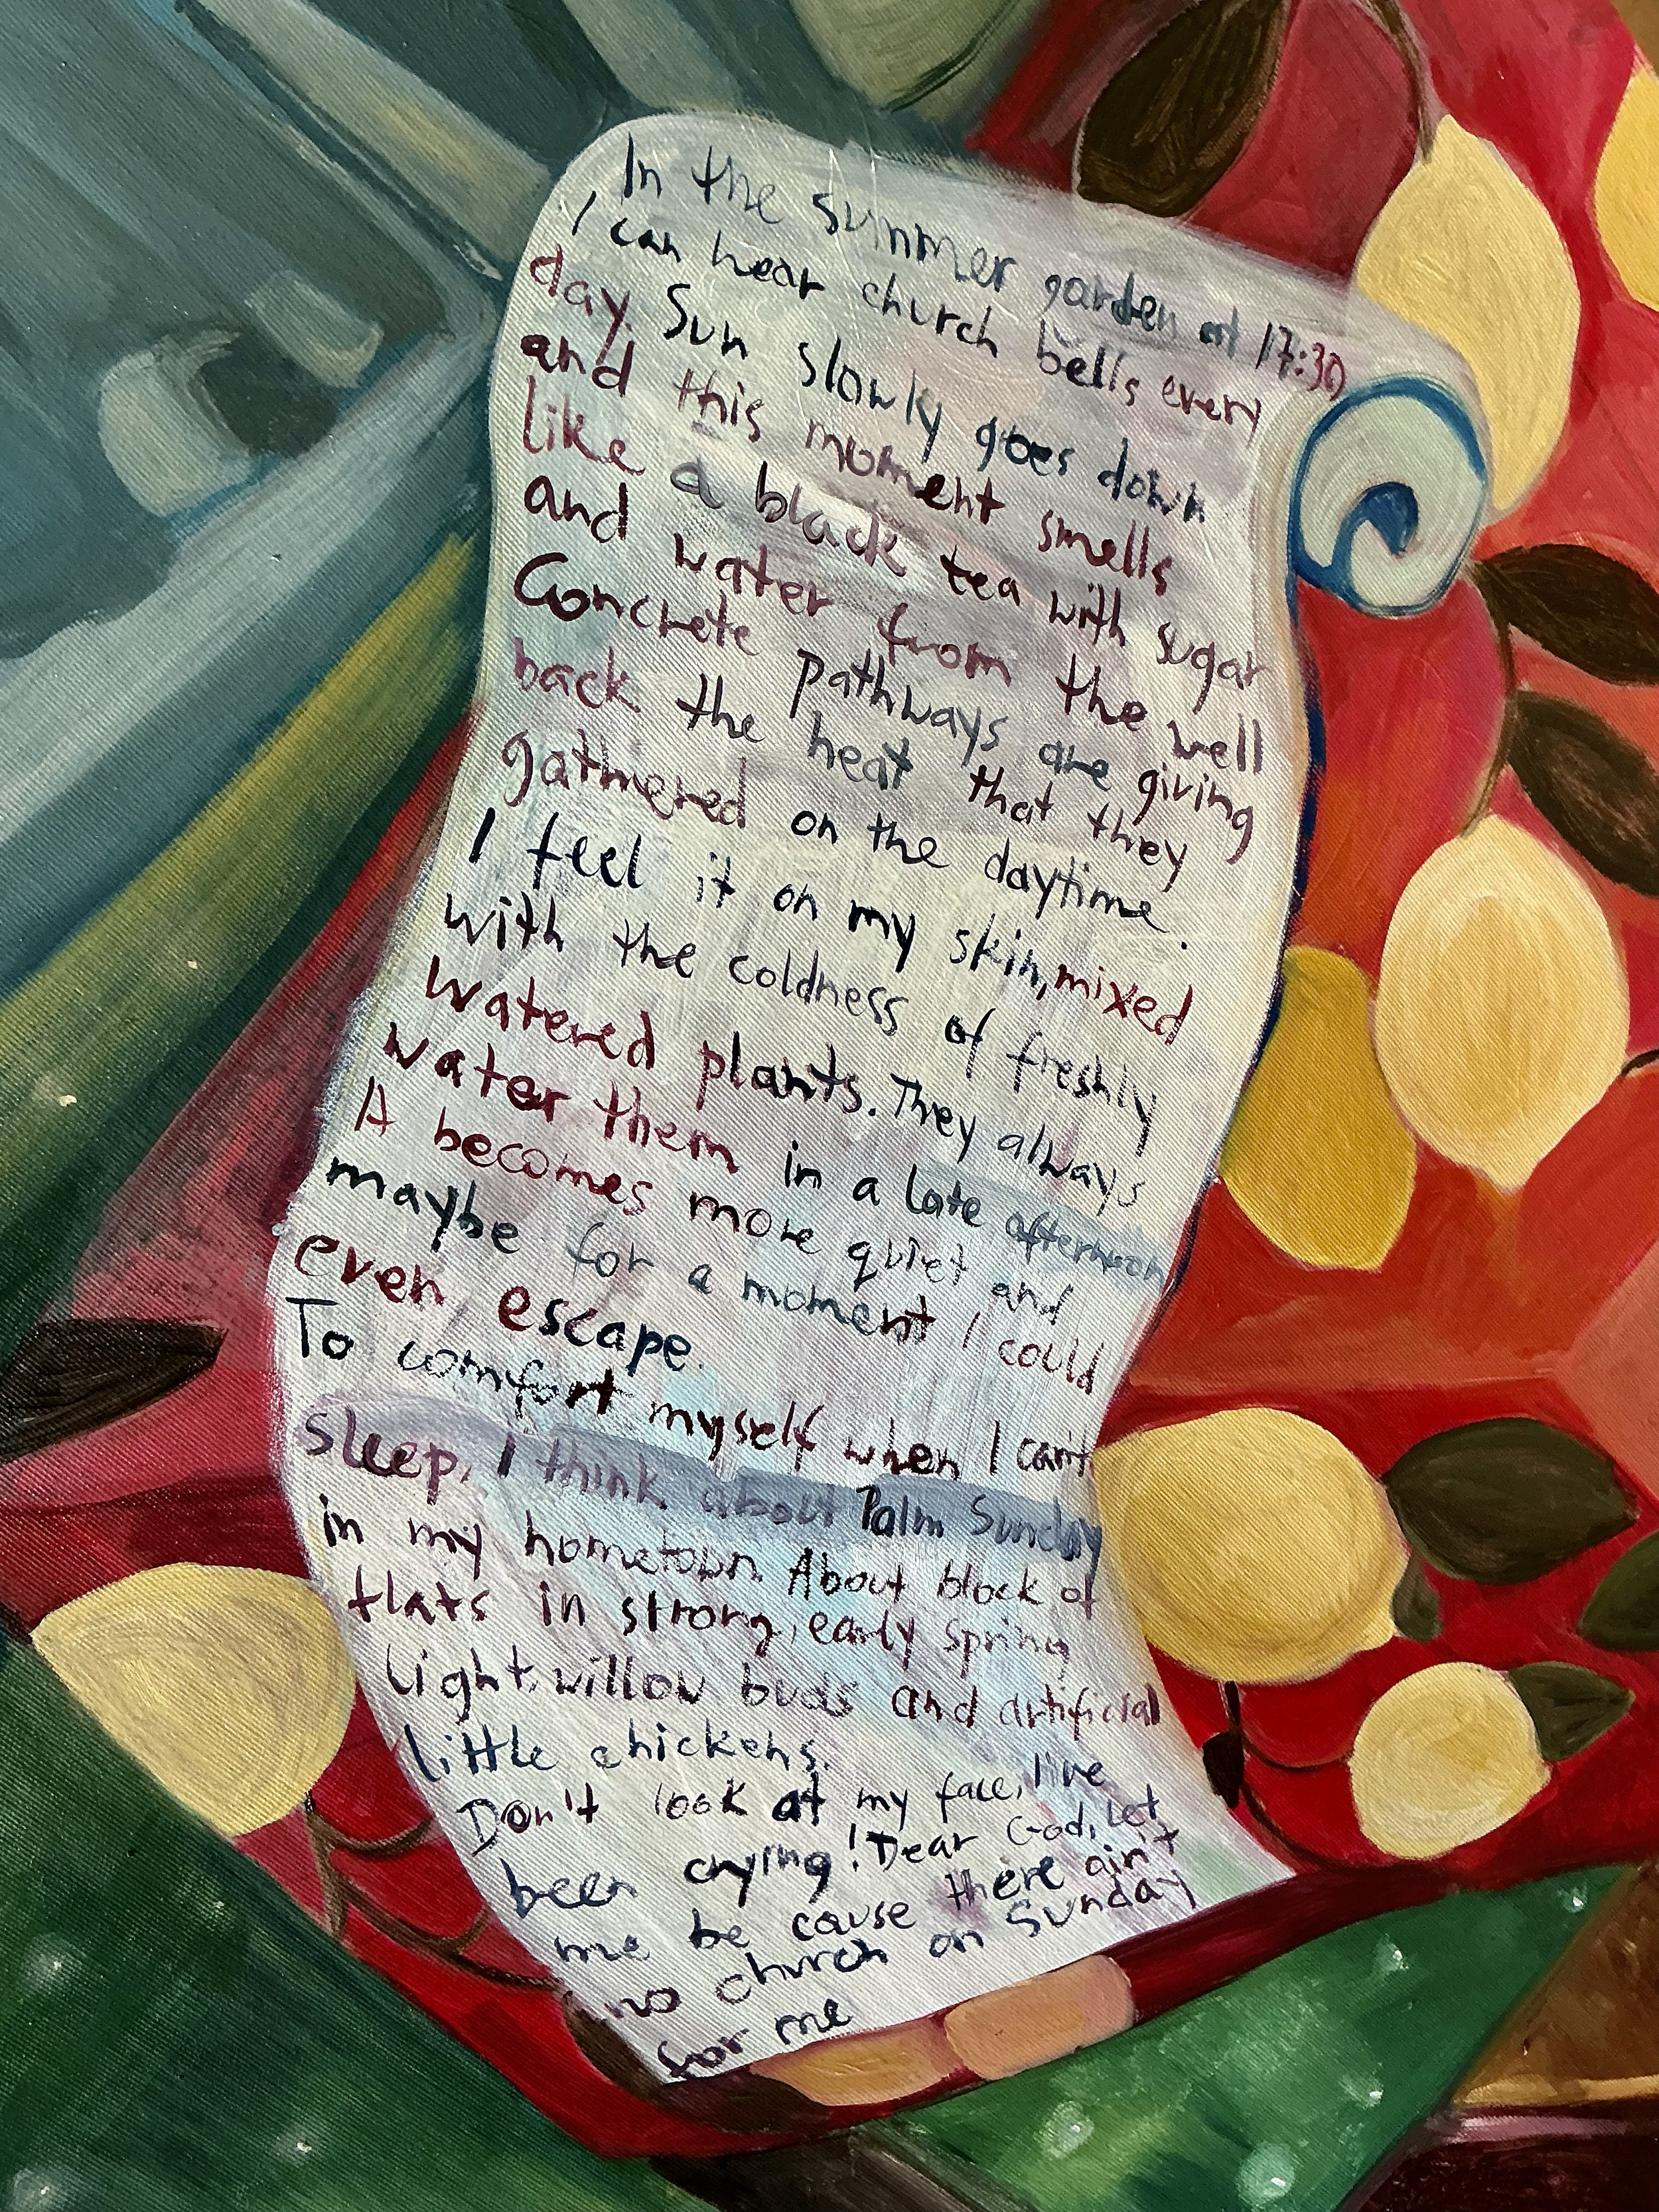 In the summer garden at 17:30
I can hear church bells every
day. Sun slowly goes down
and this moment smells
like a black tea with sugar
and water from the well
Concrete pathways are giving
back the heat that they
gathered on the daytime.
I feel it on my skin, mixed
with the coldness of freshly
watered plants. They always
water them in a late afternoon
A becomes more quiet and
maybe for a moment I could
even escape.
To comfort myself when I can't
sleep, I think about Palm Sunday
in my hometown. About block of
flats in strong, early spring
light, willow buds and artificial
little chickens.
Don't look at my face, I've
been crying! Dear God, Let
me be cause there ain't
no church on Sunday
for me